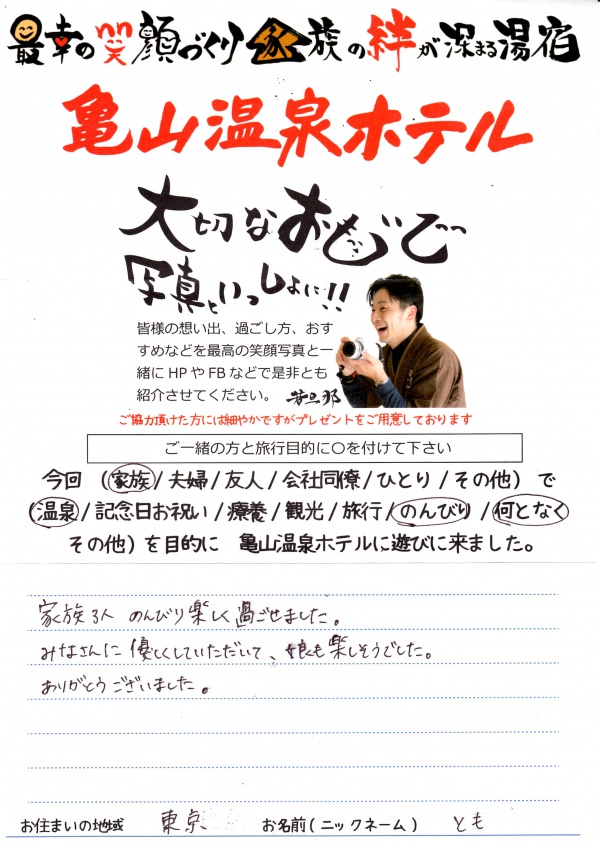 最幸の笑顔づくり家族の絆が深まる湯宿
亀山温泉ホテル
大切なおもいで
写真といっしょに!!
皆様の想い出、過ごし方、おす
すめなどを最高の笑顔写真と一
緒にHPやFBなどで是非とも
紹介させてください。 若旦那
ご協力頂けた方には細やかですがプレゼントをご用意しております
ご一緒の方と旅行目的に○を付けて下さい
今回 (家族/夫婦/友人/会社同僚/ひとり/その他) で
(温泉/記念日お祝い/療養/観光/旅行/のんびり/何となく
その他) を目的に 亀山温泉ホテルに遊びに来ました。
家族3人 のんびり楽しく過ごせました。
みなさんに優しくしていただいて、娘も楽しそうでした。
ありがとうございました。
お住まいの地域 東京 お名前(ニックネーム) とも